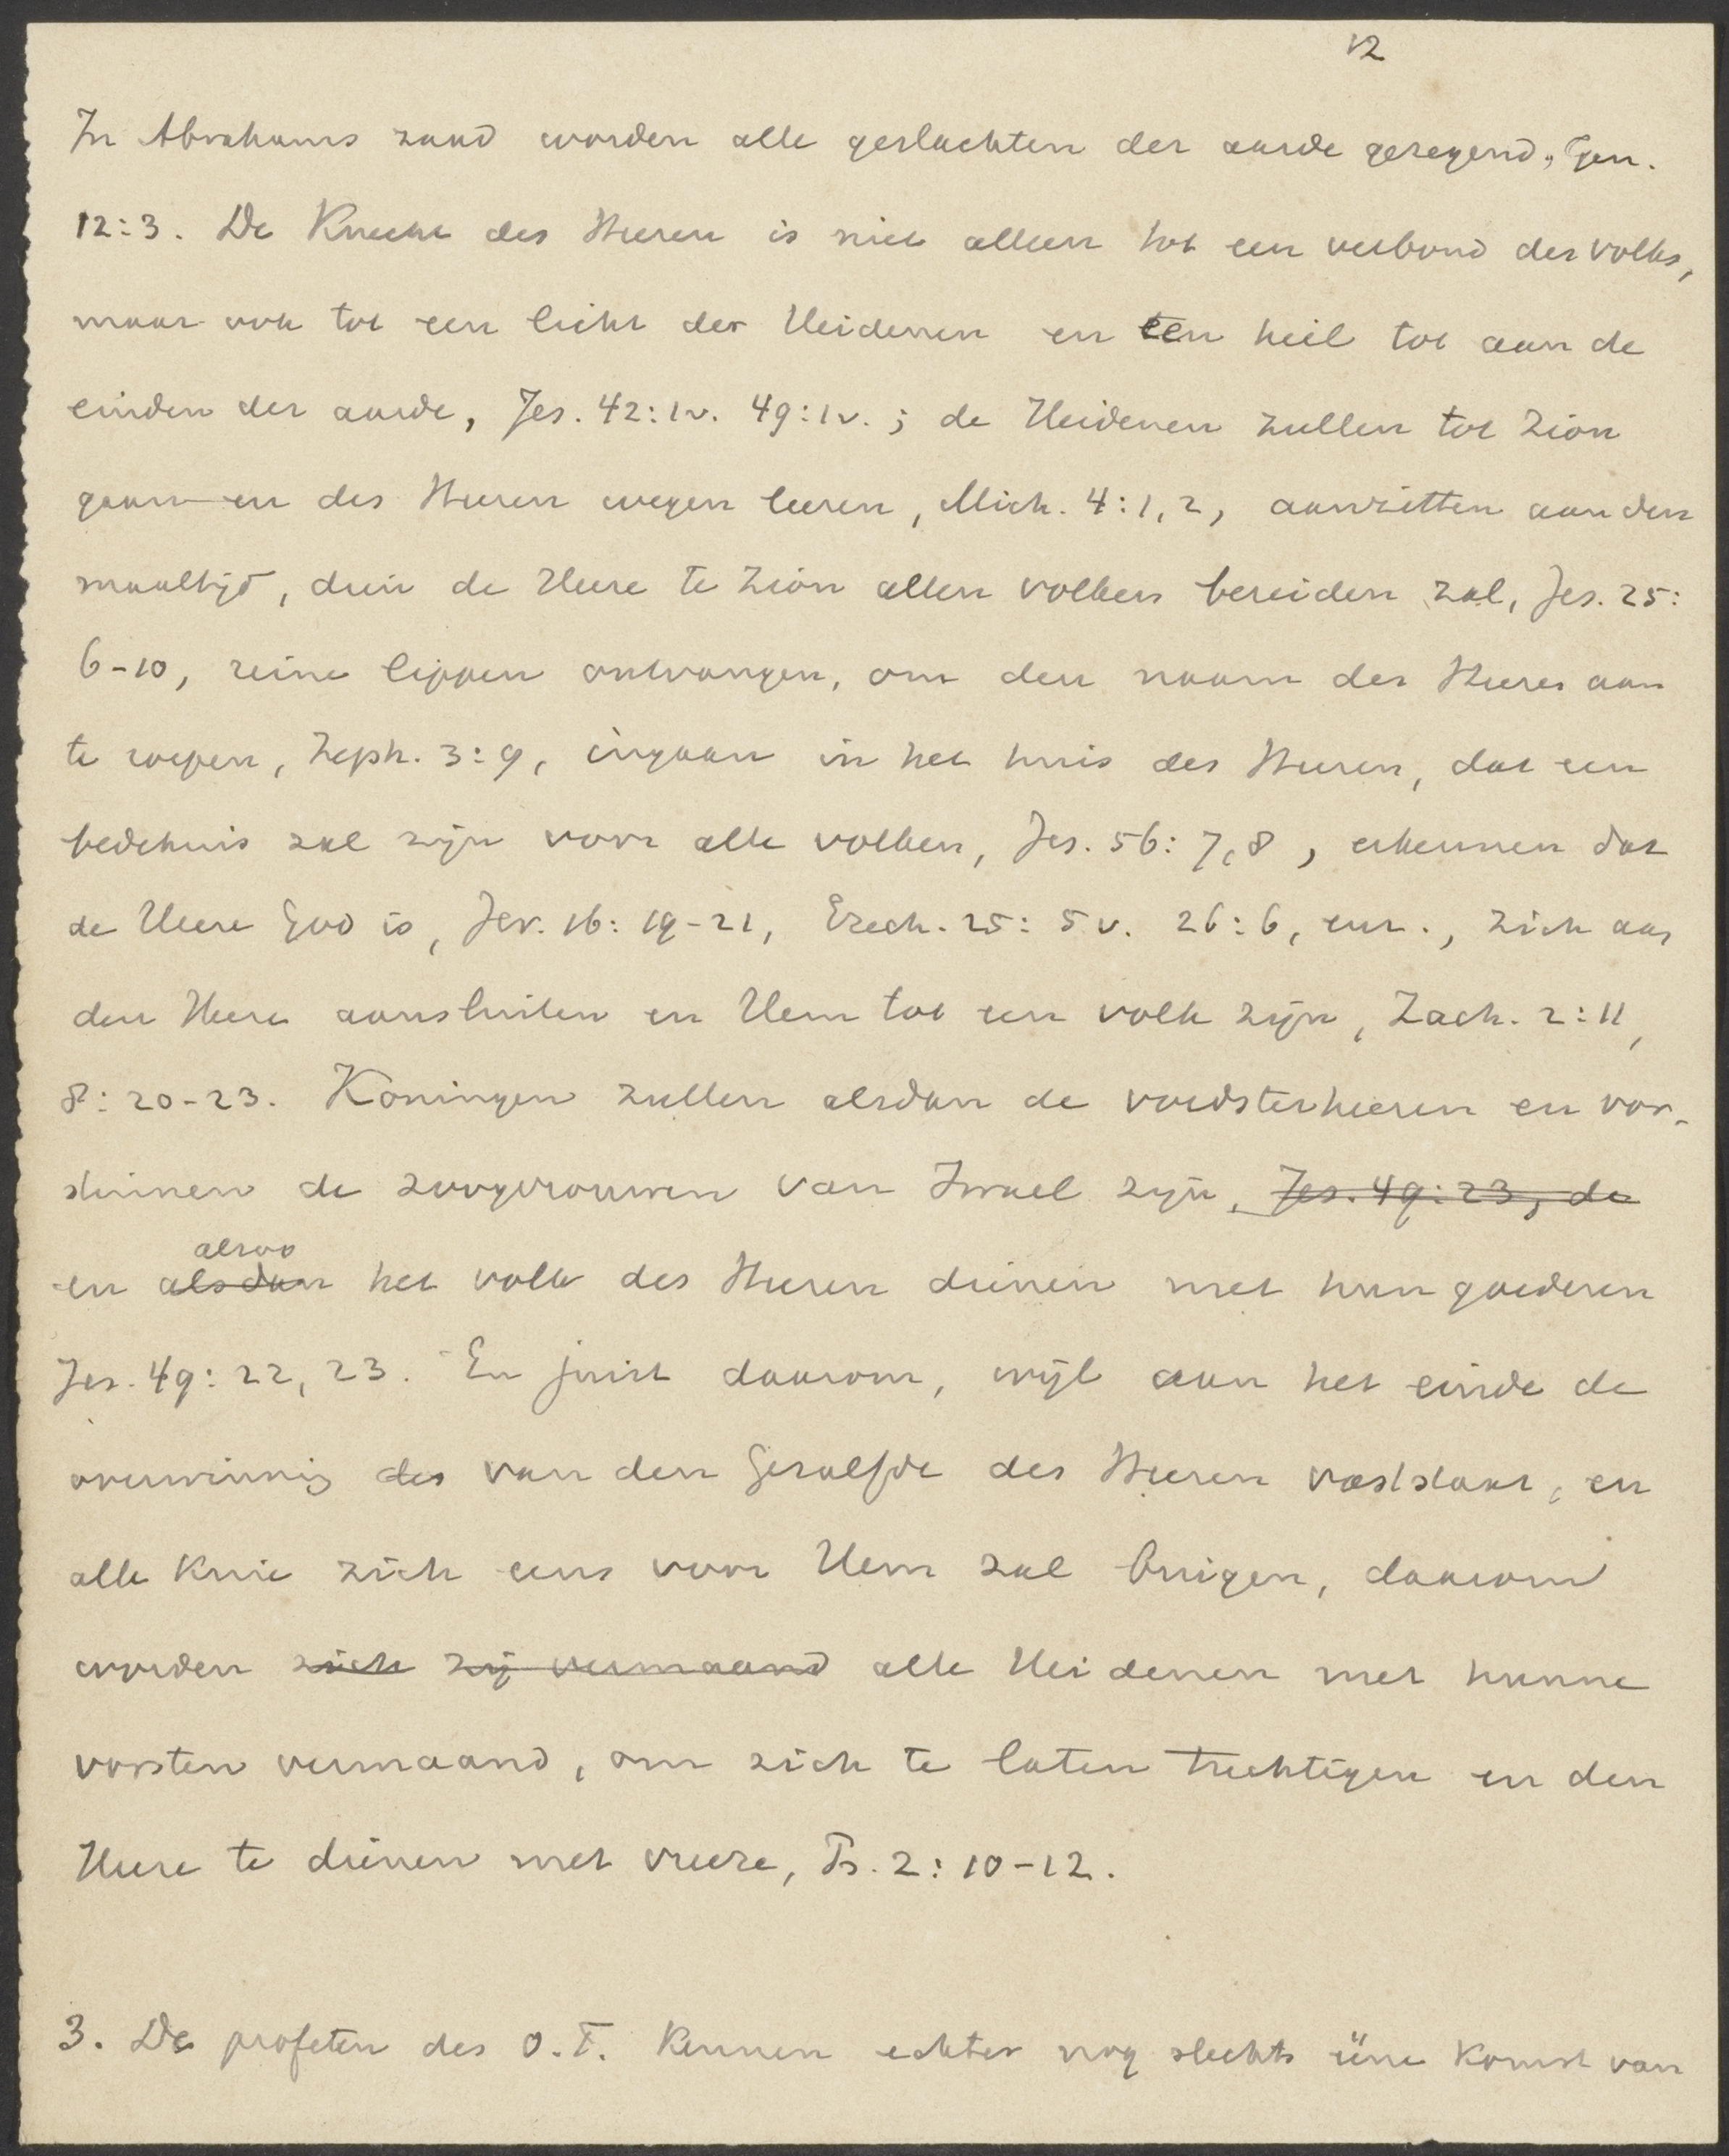 12
In Abrahams zaad worden alle geslachten der aarde gezegend, Gen.
12:3. De Knecht des Heeren is niet alleen tot een verbond des volks,
maar ook tot een licht der Heidenen en een heil tot aan de
einden der aarde, Jes. 42:1v. 49:1v.; de Heidenen zullen tot Zion
gaan en des Heeren wegen leeren, Mich. 4:1,2, aanzitten aan den
maaltijd, dien de Heere te Zion allen volken bereiden zal, Jes. 25:
6-10, reine lippen ontvangen, om den naam des Heeren aan
te roepen, Zeph. 3:9, ingaan in het huis des Heeren, dat een
bedehuis zal zijn voor alle volken, Jes. 56:7,8, erkennen dat
de Heere God is, Jer. 16:19-21, Ezech. 25:5v. 26:6, enz., zich aan
den Heere aansluiten en Hem tot een volk zijn, Zach. 2:11,
8:20-23. Koningen zullen alsdan de voedsterheeren en vor-
stinnen de zoogvrouwen van Israel zijn, Jes. 49:23, de
alzoo
en alsdan het volk des Heeren dienen met hun goederen
Jes. 49:22, 23. En juist daarom, wijl aan het einde de
overwinning des van den Gezalfde des Heeren vaststaat, en
alle knie zich eens voor Hem zal buigen, daarom
worden zich zij vermaand alle Heidenen met hunne
vorsten vermaand, om zich te laten tuchtigen en den
Heere te dienen met vreeze, Ps. 2:10-12.
3. De profeten des O.T. kennen echter nog slechts ééne komst van